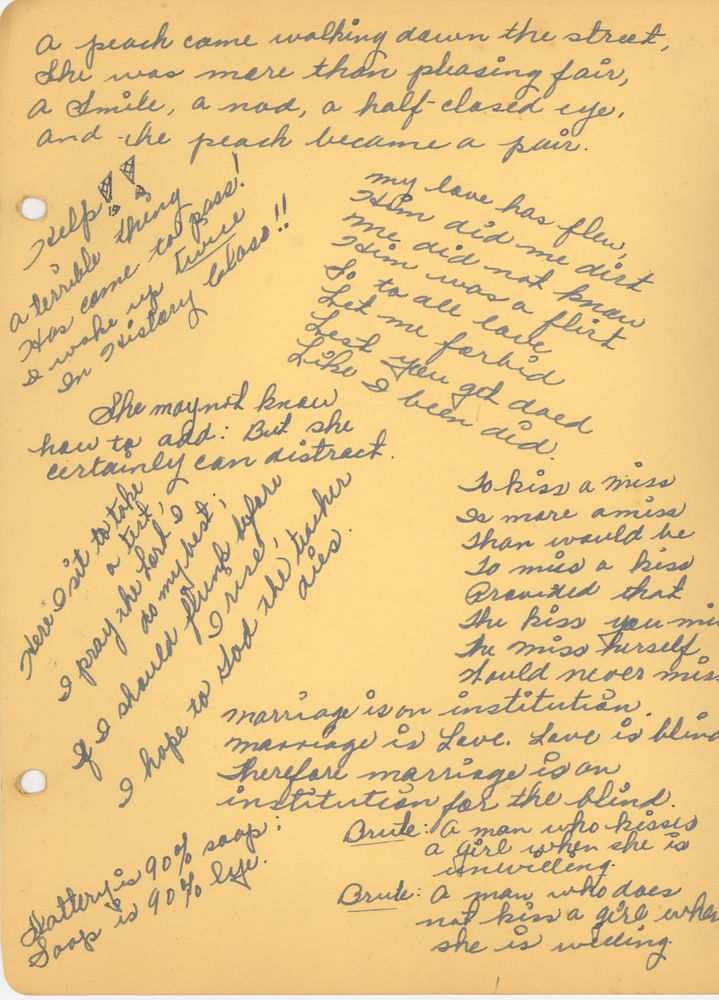 A peach came walking down the street,
She was more than pleasing fair,
A smile, a nod, a half-closed eye,
And the peach became a pair.
Help!!
A terrible thing
Has come to pass!
I woke up twice
In History Class!!
My love has flew,
Him did me dirt
Me did not know
Him was a flirt
So to all love
Let me forbid
Lest you get doed
Like I been did.
She may not know
how to add: But she
certainly can distract.
Here I sit to take
a test,
I pray the Lord I
do my best;
If I should flunk before
I rise,
I hope to God the teacher
dies.
To kiss a miss
Is more amiss
Than would be
To miss a kiss
Provided that
The kiss you mi
The miss herself
Would never miss
Marriage is an institution.
Marriage is Love. Love is blind
Therefore marriage is an
institution for the blind.
Flattery is 90% soap;
Soap is 90% lye.
Brute: A man who kisses
a girl when she is
unwilling.
Brute: A man who does
not kiss a girl when
she is willing.